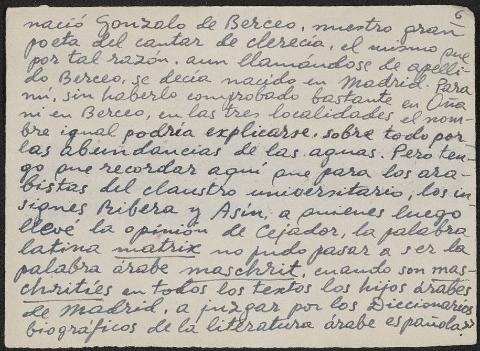 6
nació Gonzalo de Berceo, nuestro gran
poeta del cantar de clerecía, el mismo que
por tal razón, aun llamándose de apelli-
do Berceo, se decía nacido en Madrid. Para
mí, sin haberlo comprobado bastante en Oña
ni en Berceo, en las tres localidades el nom-
bre igual podría explicarse, sobre todo por
las abundancias de las aguas. Pero ten-
go que recordar aquí que para los ara-
bistas del claustro universitario, los in-
signes Ribera y Asín, a quienes luego
llevé la opinión de Cejador, la palabra
latina matrix no pudo pasar a ser la
palabra árabe maschrit, cuando son mas-
chritíes en todos los textos los hijos árabes
de Madrid, a juzgar por los Diccionarios
biográficos de la literatura árabe española"